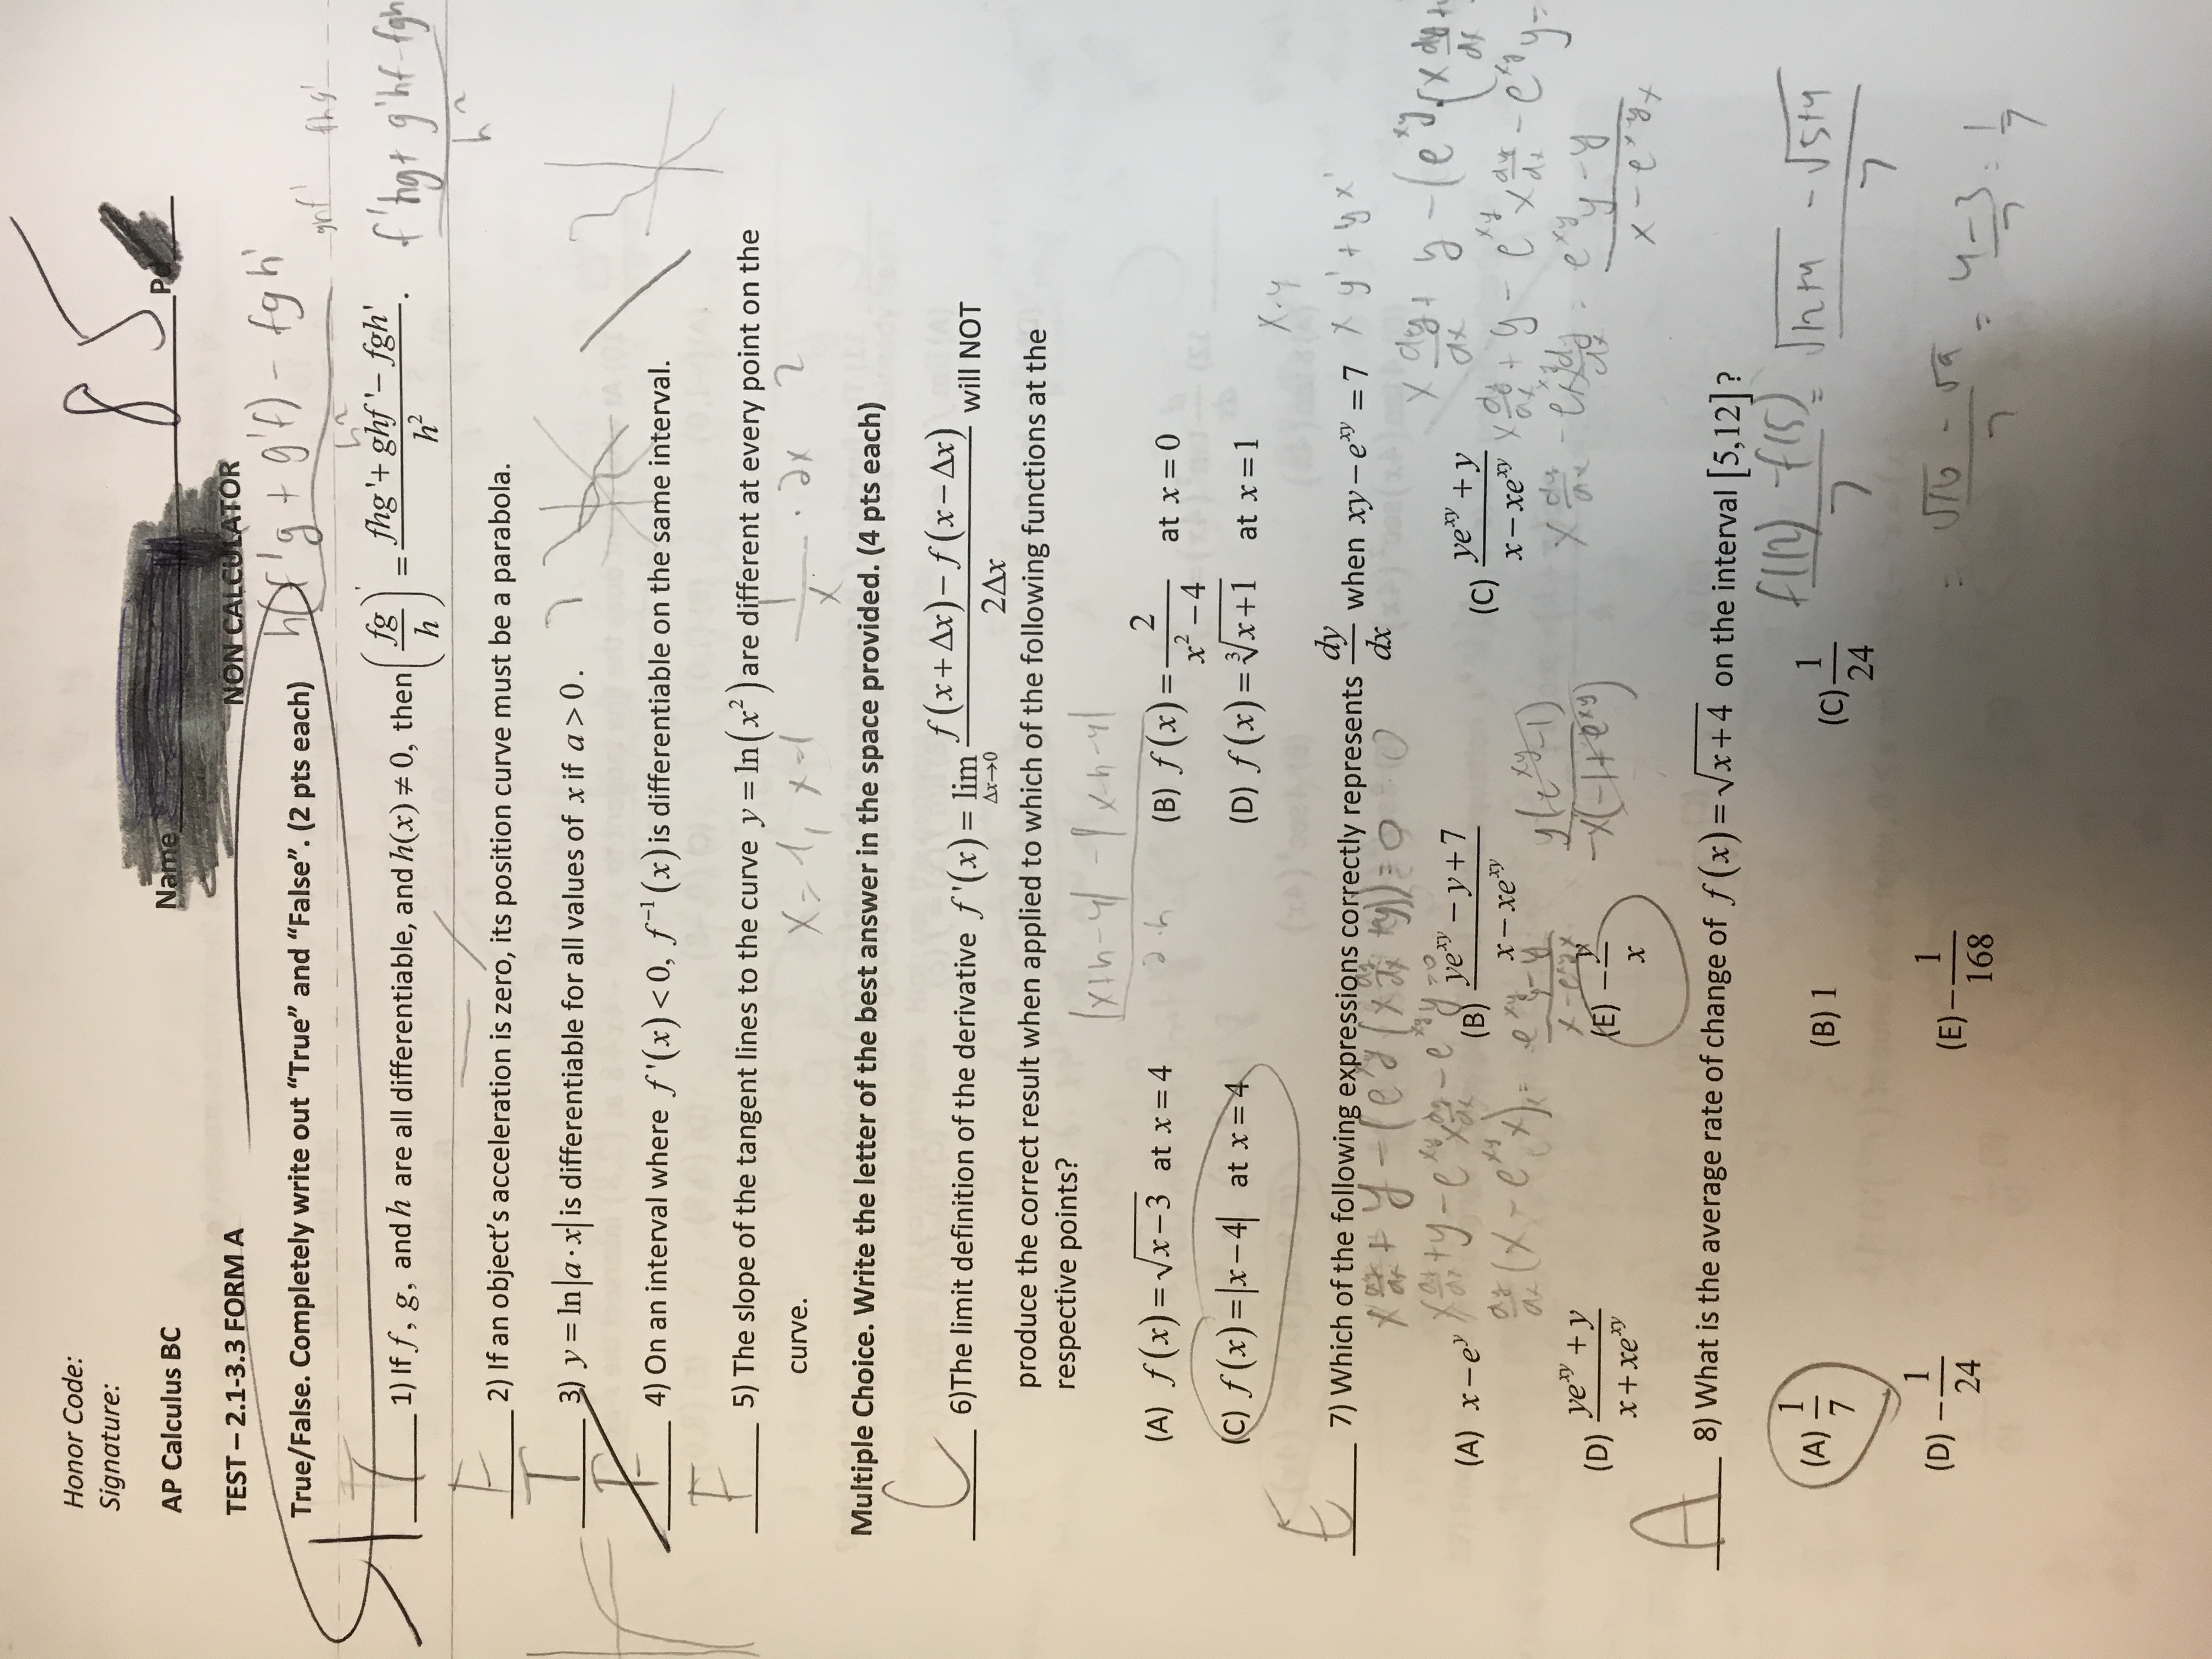 Honor Code:
Signature:
85
AP Calculus BC Name Pd
TEST – 2.1-3.3 FORM A NON CALCULATOR
h(f'g + g'f) - fgh'
h²
True/False. Completely write out “True” and “False”. (2 pts each)
ghf' fhg'
T 1) If f, g, and h are all differentiable, and h(x) ≠ 0, then (fg/h)' = (fhg'+ ghf '− fgh')/h².
f'hg + g'hf - fgh
h²
F 2) If an object’s acceleration is zero, its position curve must be a parabola.
T 3) y = ln|a·x| is differentiable for all values of x if a > 0.
4) On an interval where f '(x) < 0, f⁻¹(x) is differentiable on the same interval.
F 5) The slope of the tangent lines to the curve y = ln(x²) are different at every point on the
curve.
1/x · 2x 2
Multiple Choice. Write the letter of the best answer in the space provided. (4 pts each)
C 6)The limit definition of the derivative f '(x) = lim Δx→0 (f(x+Δx) − f(x−Δx))/(2Δx) will NOT
produce the correct result when applied to which of the following functions at the
respective points?
|x+h-4| - |x-h-4|
2·h
(A) f(x) = √(x−3) at x = 4 (B) f(x) = 2/(x²−4) at x = 0
(C) f(x) = |x−4| at x = 4 (D) f(x) = ∛(x+1) at x = 1
x·y
E 7) Which of the following expressions correctly represents dy/dx when xy − e^xy = 7
x y' + y x'
x dy/dx + y - (e^xy (x dy/dx + y)) = 0
x dy/dx + y - e^xy x dy/dx - e^xy y = 0
(A) x − e^y (B) (ye^xy − y + 7)/(x − xe^xy) (C) (ye^xy + y)/(x − xe^xy)
x dy/dx + y - e^xy x dy/dx - e^xy y =
dy/dx (x - e^xy x) =
y(e^xy - 1)
-x(-1 + e^xy)
e^xy y - y
x - e^xy x
(D) (ye^xy + y)/(x + xe^xy) (E) −y/x
A 8) What is the average rate of change of f(x) = √(x+4) on the interval [5,12]?
f(12) - f(5)/7 = (√12+4 - √5+4)/7
(A) 1/7 (B) 1 (C) 1/24
= (√16 - √9)/7 = (4-3)/7 = 1/7
(D) −1/24 (E) −1/168